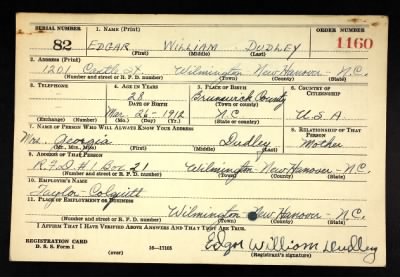 SERIAL NUMBER 1. NAME (Print) ORDER NUMBER
82 EDGAR WILLIAM DUDLEY 1160
(First) (Middle) (Last)
2. ADDRESS (Print)
1201 Castle St. Wilmington New Hanover - N.C.
(Number and street or R. F. D. number) (Town) (County) (State)
3. TELEPHONE 4. AGE IN YEARS 5. PLACE OF BIRTH 6. COUNTRY OF CITIZENSHIP
28 Brunswick County
DATE OF BIRTH (Town or county)
Mar. 26 - 1912 N.C. U.S.A.
(Exchange) (Number) (Mo.) (Day) (Yr.) (State or country)
7. NAME OF PERSON WHO WILL ALWAYS KNOW YOUR ADDRESS 8. RELATIONSHIP OF THAT PERSON
Mrs. Georgia Dudley Mother
(Mr., Mrs., Miss) (First) (Middle) (Last)
9. ADDRESS OF THAT PERSON
R.F.D #1 Box 21 Wilmington - New Hanover - N.C.
(Number and street or R. F. D. number) (Town) (County) (State)
10. EMPLOYER'S NAME
Taylor-Colquitt
11. PLACE OF EMPLOYMENT OR BUSINESS
Wilmington New Hanover - N.C.
(Number and street or R. F. D. number) (Town) (County) (State)
I AFFIRM THAT I HAVE VERIFIED ABOVE ANSWERS AND THAT THEY ARE TRUE.
REGISTRATION CARD Edgar William Dudley
D. S. S. Form 1 (over) 16-17105 (Registrant's signature)